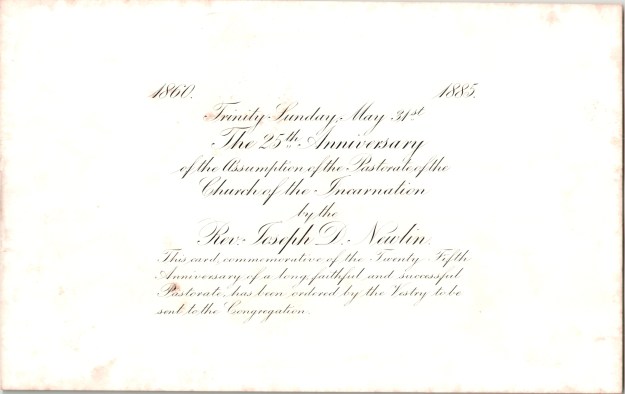 1860. 1885.
Trinity Sunday, May 31st
The 25th Anniversary
of the Assumption of the Pastorate of the
Church of the Incarnation
by the
Rev. Joseph D. Newlin.
This card, commemorative of the Twenty Fifth
Anniversary of a long, faithful and successful
Pastorate, has been ordered by the Vestry to be
sent to the Congregation.